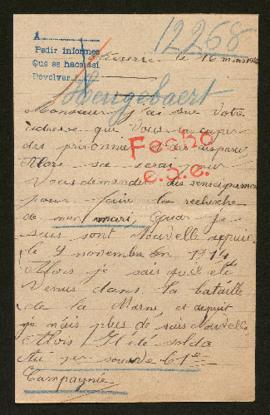 A
Pedir informes
Que se haga así
Devolver
12268
le 16 mars
Hengebaert
Monsieur J'ai su votre
adresse que vous
des prisonniers des disparu
Alors se serai pour
Fecho
e.s.e.
Vous demande des renseignemen
pour faire les recherche
de mon mari, que je
suis sont Nouvelle depuis
le 9 novembre en 1914
Alors je sais qu'il été
venus dans la bataille
de la Marne, et depuit
je n'ais plus de sais Nouvelle
Alors Il été solda
1er
Campagnie